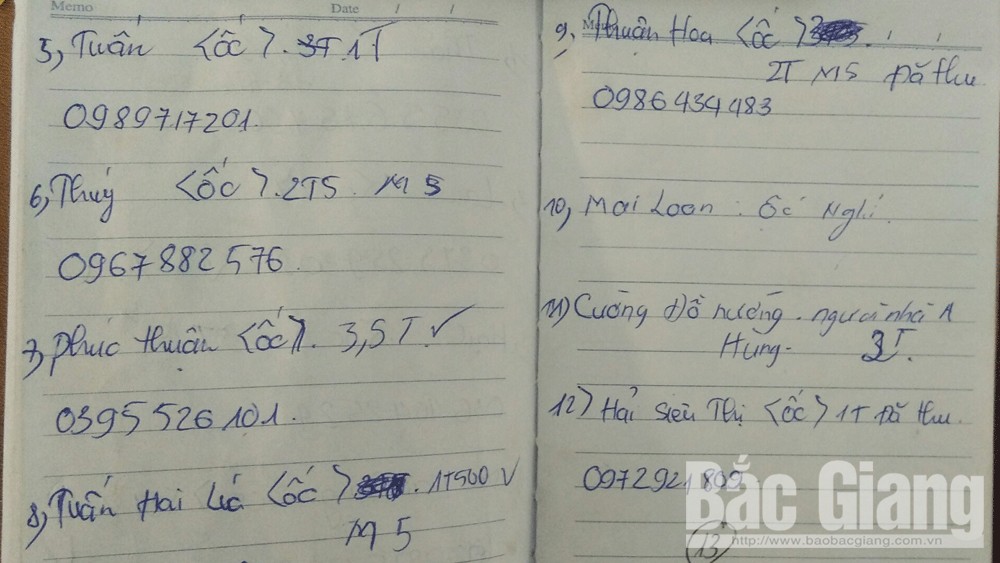 Memo Date / /
5, Tuấn <ốc>. 3T 1T
0989717201.
6, Thuý <ốc>. 2T5. M5
0967882576.
7, phúc thuận <ốc>. 3,5T. ✓
0395526101.
8, Tuấn Hai Lúa <ốc> . 1T500 ✓
M5
9, Thuận Hoa <ốc>
2T M5 Đã thu
0986434483
10, Mai Loan : ốc Nghỉ.
11) Cường đồ nướng. người nhà A
Hùng- 3T.
12) Hải Siêu Thị <ốc> 1T Đã thu.
0972921809
13
Bắc Giang
http://www.baobacgiang.com.vn